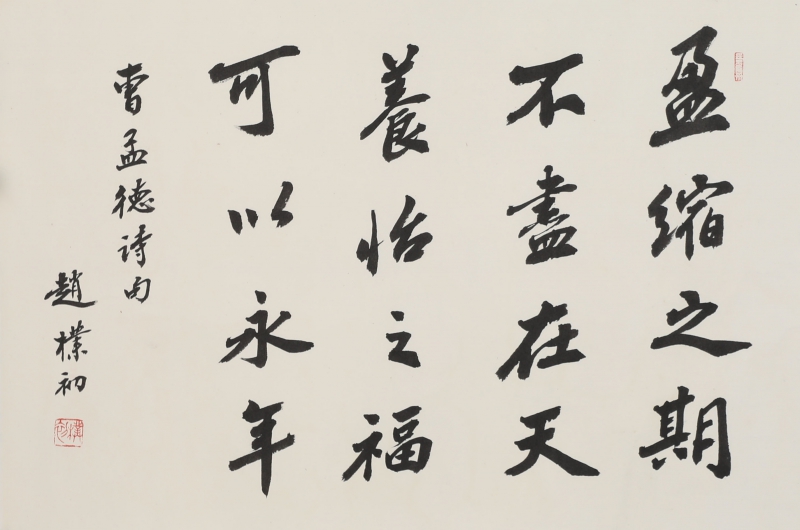 盈縮之期
不盡在天
養怡之福
可以永年
曹孟德詩句
趙樸初